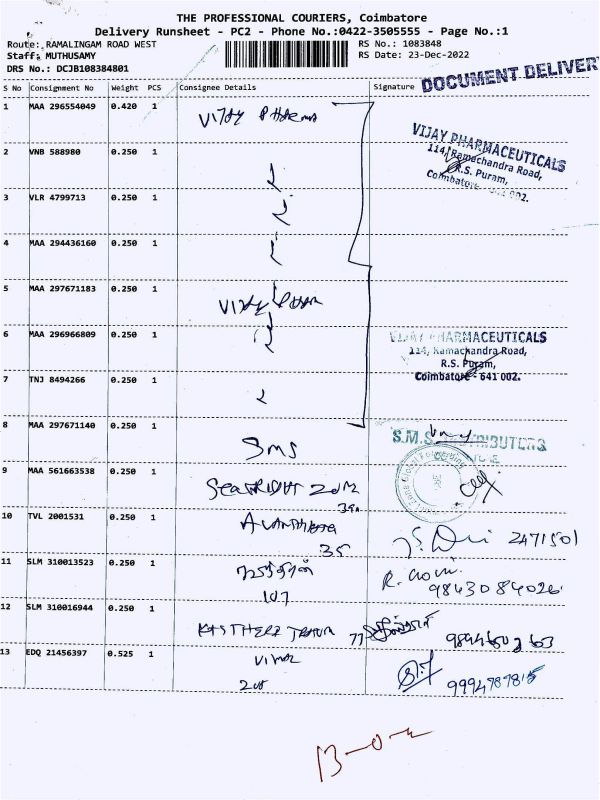 THE PROFESSIONAL COURIERS, Coimbatore
Delivery Runsheet - PC2 - Phone No.:0422-3505555 - Page No.:1
Route: RAMALINGAM ROAD WEST
RS No.: 1083848
Staff: MUTHUSAMY
RS Date: 23-Dec-2022
DRS No.: DCJB108384801
DOCUMENT DELIVER
S No Consignment No Weight PCS Consignee Details Signature
1 MAA 296554049 0.420 1
VIJAY PHARMACEUTICALS
114, Ramachandra Road,
R.S. Puram,
Coimbatore - 641 002.
2 VNB 588980 0.250 1
3 VLR 4799713 0.250 1
4 MAA 294436160 0.250 1
5 MAA 297671183 0.250 1
6 MAA 296966809 0.250 1
VIJAY PHARMACEUTICALS
114, Ramachandra Road,
R.S. Puram,
Coimbatore - 641 002.
7 TNJ 8494266 0.250 1
8 MAA 297671140 0.250 1 SMS
S.M.S. DISTRIBUTORS
9 MAA 561663538 0.250 1
10 TVL 2001531 0.250 1
35 2471501
11 SLM 310013523 0.250 1
107 9843084026
12 SLM 310016944 0.250 1
77
13 EDQ 21456397 0.525 1